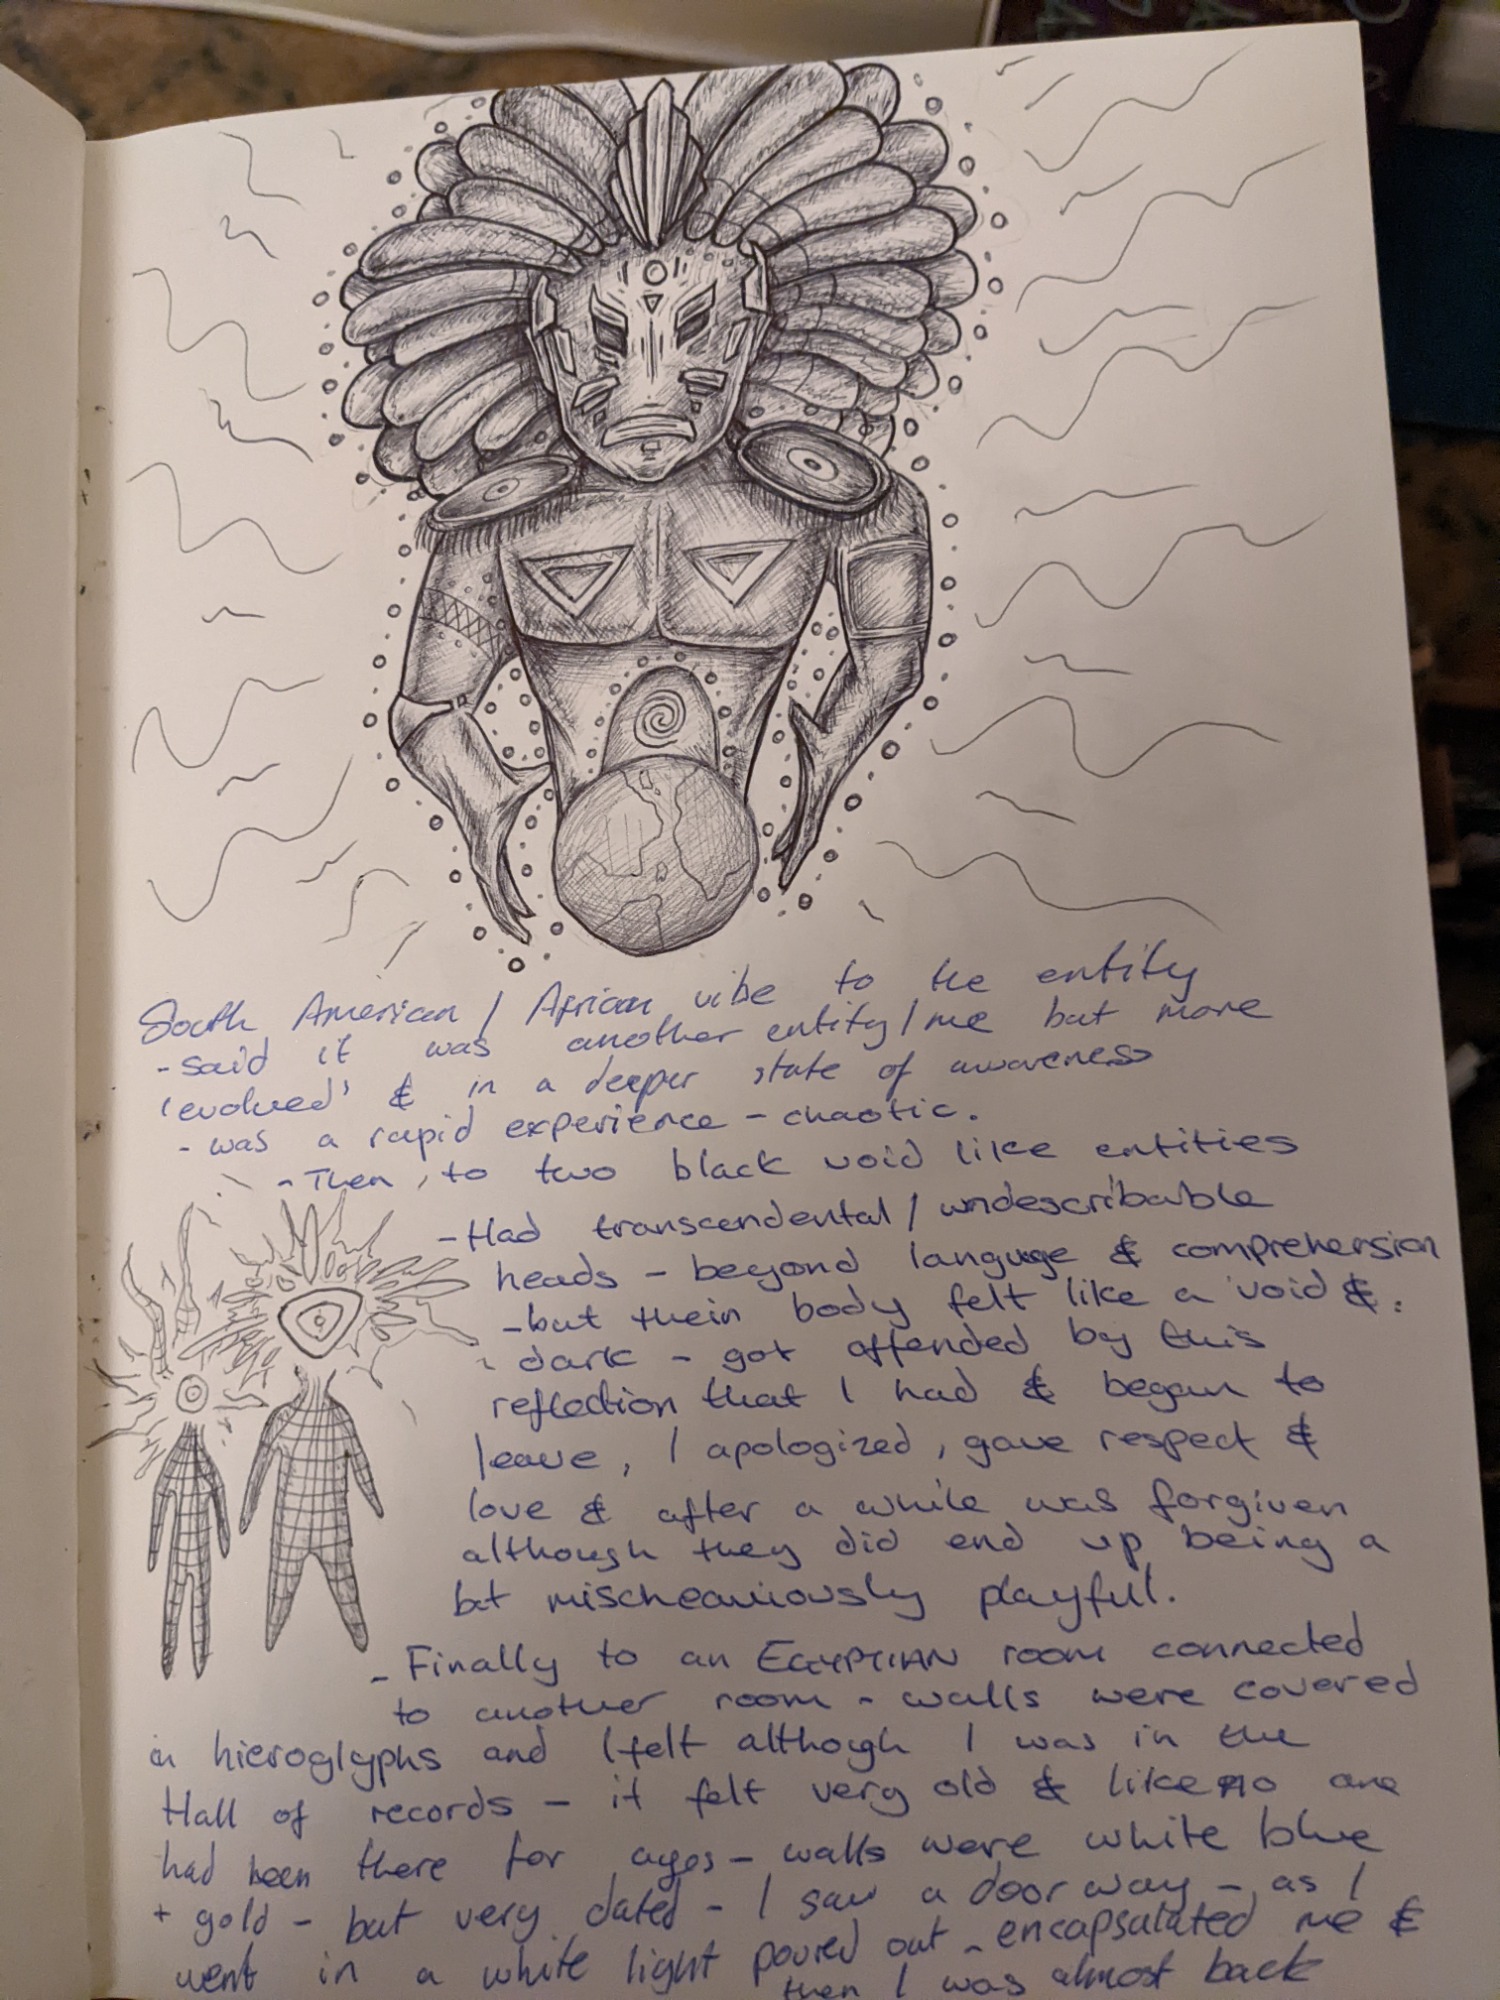 South American / African vibe to the entity
- said it was another entity / me but more
'evolved' & in a deeper state of awareness
- was a rapid experience - chaotic.
- Then, to two black void like entities
- Had transcendental / undescribable
heads - beyond language & comprehension
- but their body felt like a void &
dark - got offended by this
reflection that I had & began to
leave, I apologized, gave respect &
love & after a while was forgiven
although they did end up being a
bit mischeaviously playful.
- Finally to an EGYPTIAN room connected
to another room - walls were covered
in hieroglyphs and I felt although I was in the
Hall of records - it felt very old & like no one
had been there for ages - walls were white blue
+ gold - but very dated - I saw a doorway - as I
went in a white light poured out - encapsulated me &
then I was almost back